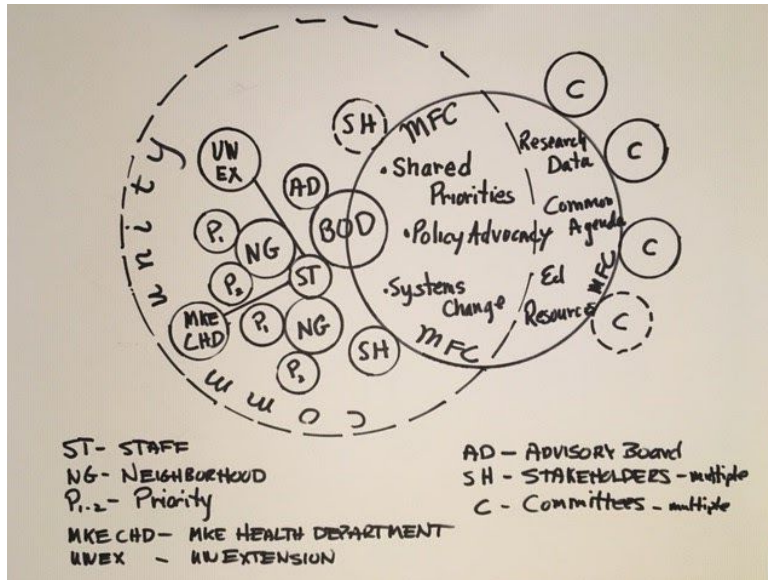 SH
MFC
UW
EX
AD
BOD
P₁
NG
P₂
ST
MKE
CHD
P₁
NG
P₂
SH
Community
• Shared
Priorities
• Policy Advocacy
• Systems
Change
MFC
Research
Data
Common
Agenda
MFC
Ed
Resources
C
C
C
C
ST- STAFF
NG- NEIGHBORHOOD
P₁-₂- Priority
MKE CHD- MKE HEALTH DEPARTMENT
UWEX - UW EXTENSION
AD - ADVISORY Board
SH - STAKEHOLDERS - multiple
C - Committees - multiple